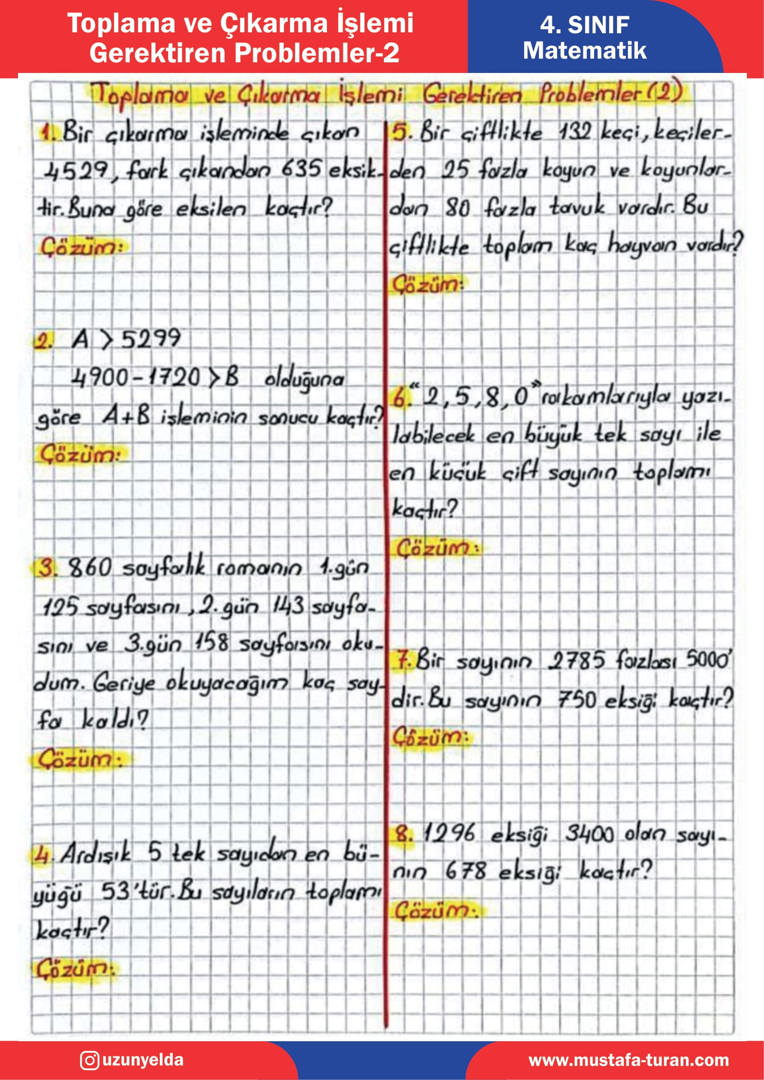 Toplama ve Çıkarma İşlemi
Gerektiren Problemler-2
4. SINIF
Matematik
Toplama ve Çıkarma İşlemi Gerektiren Problemler (2)
1. Bir çıkarma işleminde çıkan
4529, fark çıkandan 635 eksik-
tir. Buna göre eksilen kaçtır?
Çözüm:
2. A > 5299
4900-1720 > B olduğuna
göre A+B işleminin sonucu kaçtır?
Çözüm:
3. 860 sayfalık romanın 1.gün
125 sayfasını, 2.gün 143 sayfa-
sını ve 3.gün 158 sayfasını oku-
dum. Geriye okuyacağım kaç say-
fa kaldı?
Çözüm:
4. Ardışık 5 tek sayıdan en bü-
yüğü 53'tür. Bu sayıların toplamı
kaçtır?
Çözüm:
5. Bir çiftlikte 132 keçi, keçiler-
den 25 fazla koyun ve koyunlar-
dan 80 fazla tavuk vardır. Bu
çiftlikte toplam kaç hayvan vardır?
Çözüm:
6. "2,5,8,0" rakamlarıyla yazı-
labilecek en büyük tek sayı ile
en küçük çift sayının toplamı
kaçtır?
Çözüm:
7. Bir sayının 2785 fazlası 5000'
dir. Bu sayının 750 eksiği kaçtır?
Çözüm:
8. 1296 eksiği 3400 olan sayı-
nın 678 eksiği kaçtır?
Çözüm:
uzunyelda
www.mustafa-turan.com